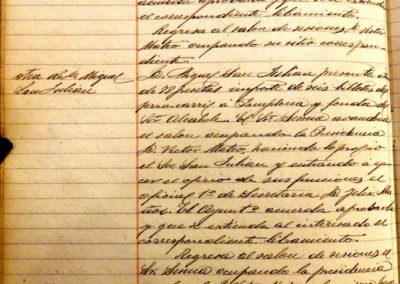 el correspondiente libramiento.
Regresa al salon de sesiones D. Victor
Mateo ocupando su sitio correspon-
diente.
otra de D. Miguel
San Julián
D. Miguel San Julian presenta una
de 72 pesetas importe de seis billetes de
ferrocarril á Pamplona y fonda del
Sr. Alcalde. El Sr. Senua abandona
el salon ocupando la Presidencia
D. Victor Mateo, haciendo lo propio
el Sr. San Julian y entrando á ejer-
cer el oficio de sus funciones el
oficial 1º de Secretaria D. Felix Mu-
ñoz. El Ayuntº acuerda aprobarla
y que se extienda al interesado el
correspondiente libramiento.
Regresa al salon de sesiones el
Sr. Senua ocupando la presidencia